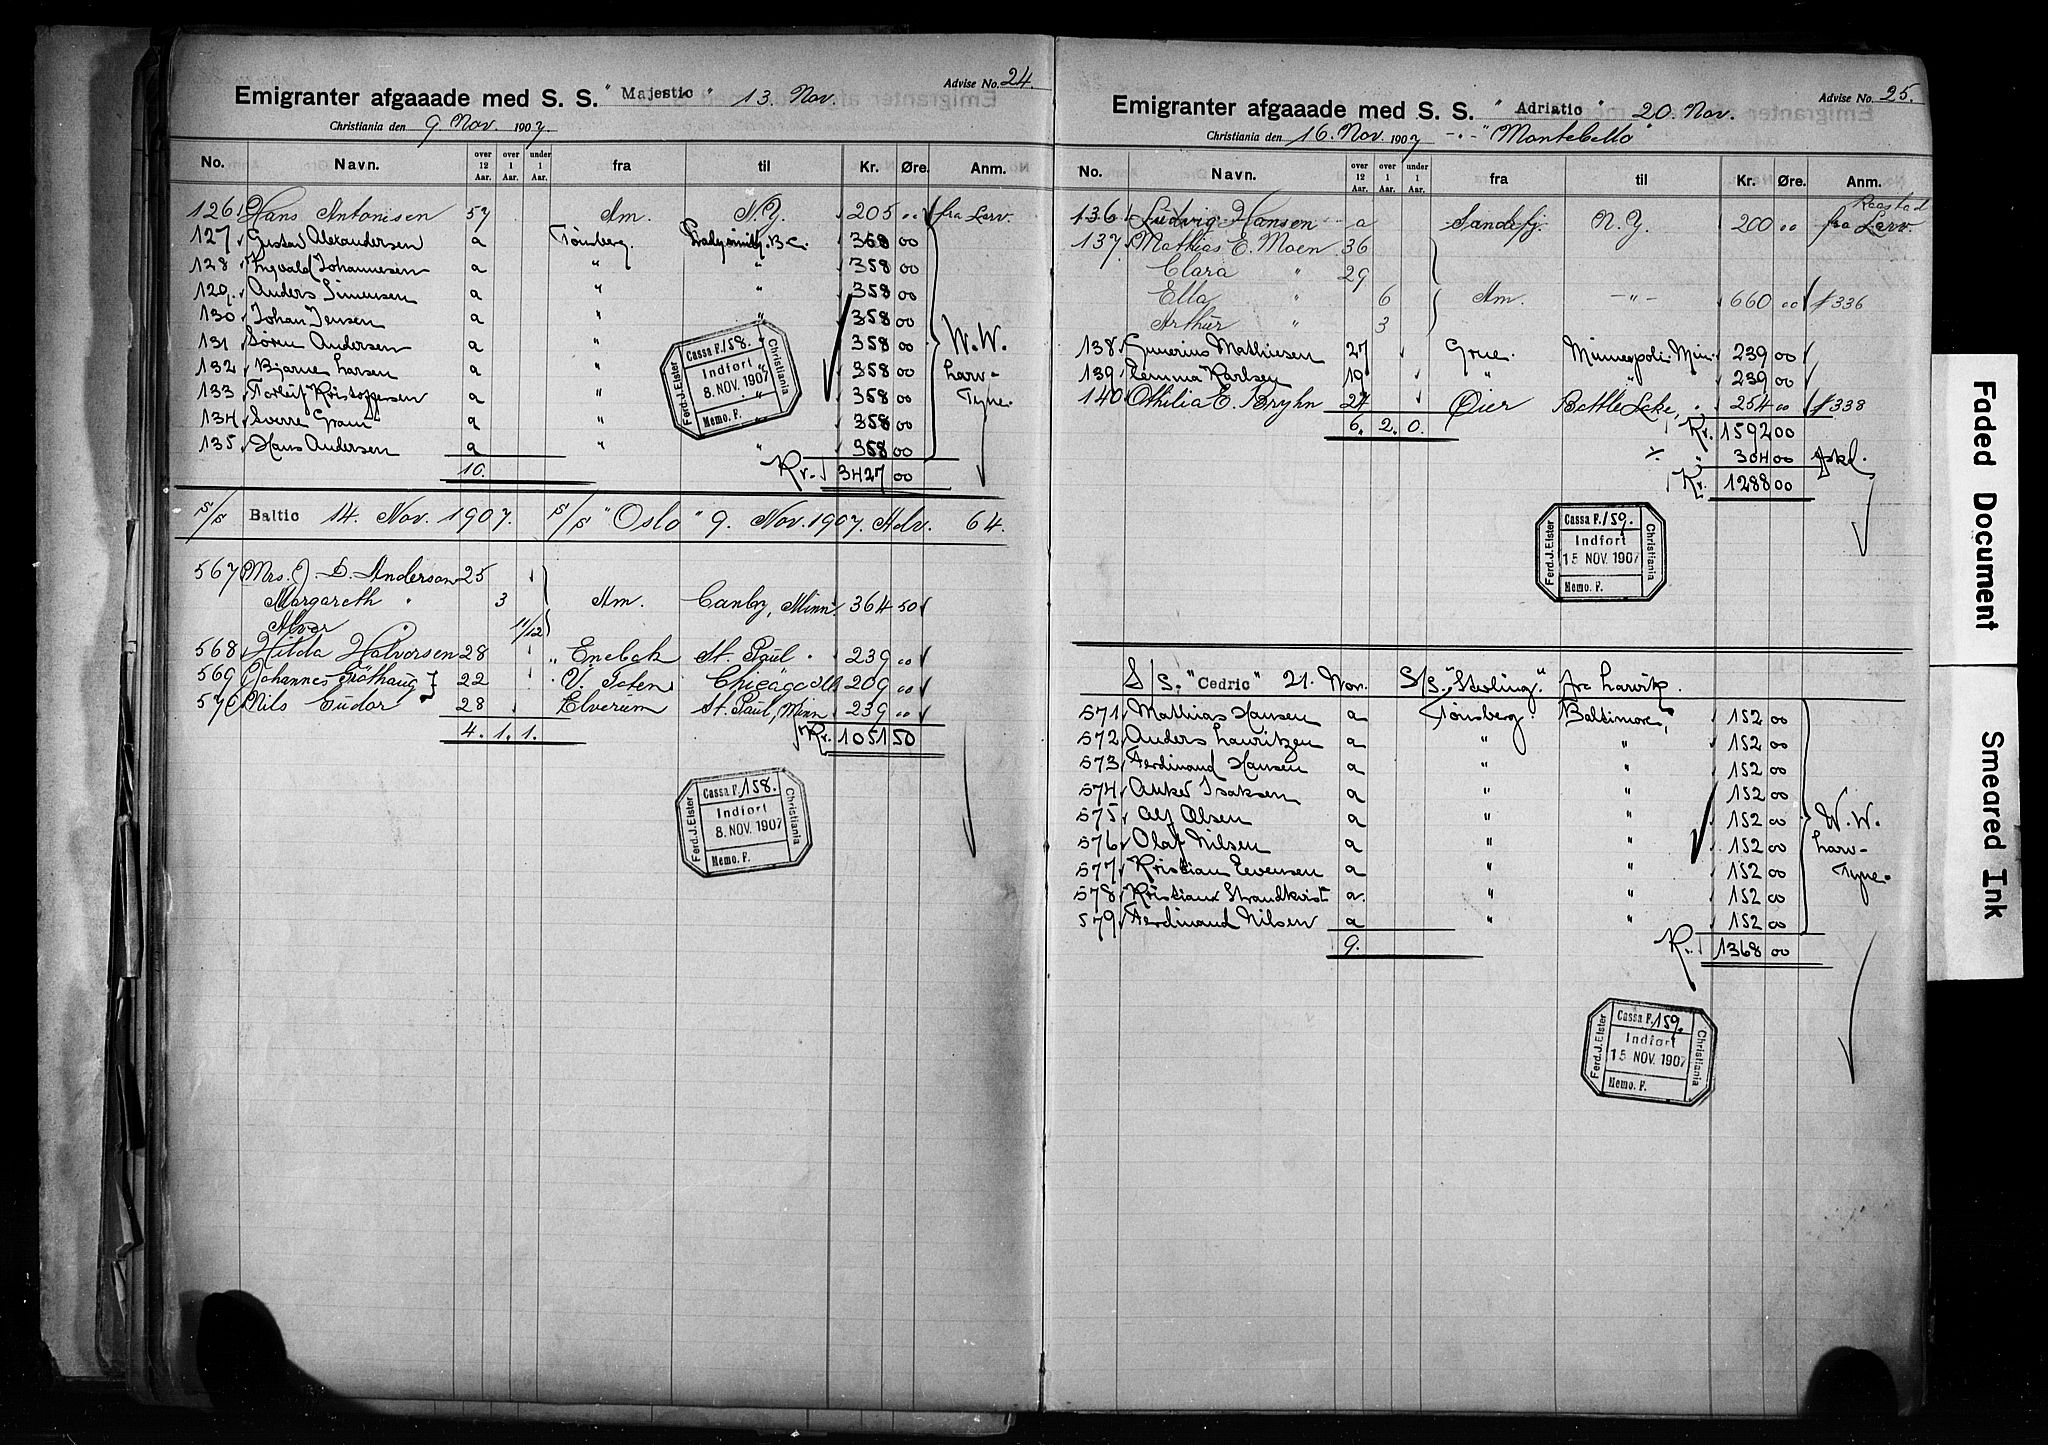 Advise No. 24.
Emigranter afgaaade med S. S. " Majestic " 13. Nov.
Christiania den 9 Nov. 1907.
No. Navn. over 12 Aar. over 1 Aar. under 1 Aar. fra til Kr. Øre. Anm.
126 Hans Antonisen 57 Am. N.Y. 205 " fra Larv.
127 Gustav Alexandersen a Tønsberg. B.C. 368 00
128 Ingvald Johannesen a " " 358 00
129 Anders Simensen a " " 358 00
130 Johan Jensen a " " 358 00
131 Søren Andersen a " " 358 00 W. W.
132 Bjarne Larsen a " " 358 00 Larv-
133 Torleif Kristoffersen a " " 358 00 Tyne.
134 Sverre Gram a 358 00
135 Hans Andersen a " " 358 00
10. Kr. 3427 00
Ferd. J. Elster
Cassa F. 158.
Indført
8. NOV. 1907
Memo. F.
Christiania
S/S Baltic 14. Nov. 1907. S/S "Oslo" 9. Nov. 1907. Adv. 64.
567 Mrs. J. D. Anderson 25
Margareth " 3 Am. Canby, Minn. 364 50
Alver " 11/12
568 Hilda Halvorsen 28 Enebak St. Paul " 239 "
569 Johannes 22 V. Toten Chicago Ill 209 "
570 Nils Gudor 28 Elverum St. Paul, Minn 239 "
4. 1. 1. Kr. 1051 50
Ferd. J. Elster
Cassa F. 158.
Indført
8. NOV. 1907
Memo. F.
Christiania
Advise No. 25.
Emigranter afgaaade med S. S. " Adriatic " 20 Nov.
Christiania den 16. Nov. 1907 - " - "Montebello"
No. Navn. over 12 Aar. over 1 Aar. under 1 Aar. fra til Kr. Øre. Anm.
Raastad
136 Ludvig Hansen a Sandefj. N.Y. 200 " fra Larv.
137 Mathias E. Moen 36
Clara " 29
Ella " 6 Am. - " - 660 " $ 336
Arthur " 3
138 Gunerius Mathiesen 27 Grue. Minneapoli. Min. 239 00
139 Emma Karlsen 19 " " 239 00
140 Othilia E. Bryhn 24 Øier Battle Lake, " 254 " $ 338
6. 2. 0. Kr. 1592 00
% " 304 00 fskd.
Kr. 1288 00
Ferd. J. Elster
Cassa F. 159.
Indført
15 NOV. 1907
Memo. F.
Christiania
S/S. "Cedric" 21. Nov. S/S. "Sterling" fra Larvik.
571 Mathias Hansen a Tønsberg. Baltimore, 152 00
572 Anders Lauritzen a " " 152 00
573 Ferdinand Hansen a " " 152 00
574 Anker Isaksen a " " 152 00
575 Alf Olsen a " " 152 00 W. W.
576 Olaf Nilsen a " " 152 00 Larv-
577 Kristian Evensen a " " 152 00 Tyne.
578 Kristian Strandkvist a " " 152 00
579 Ferdinand Nilsen a " " 152 00
9. Kr. 1368 00
Ferd. J. Elster
Cassa F. 159.
Indført
15 NOV. 1907
Memo. F.
Christiania
Faded Document
Smeared Ink